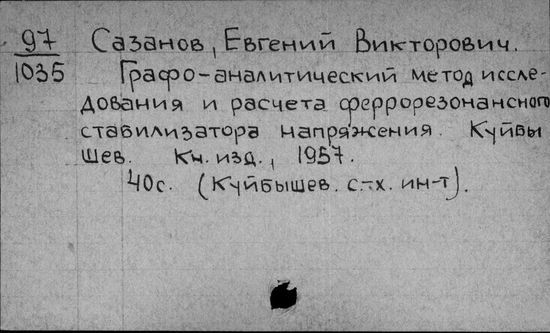 97 Сазанов, Евгений Викторович.
1035 Графо-аналитический метод иссле-
дования и расчета феррорезонансного
стабилизатора напряжения. Куйбы
шев. Кн. изд., 1957.
40с. (Куйбышев. с.-х. ин-т).